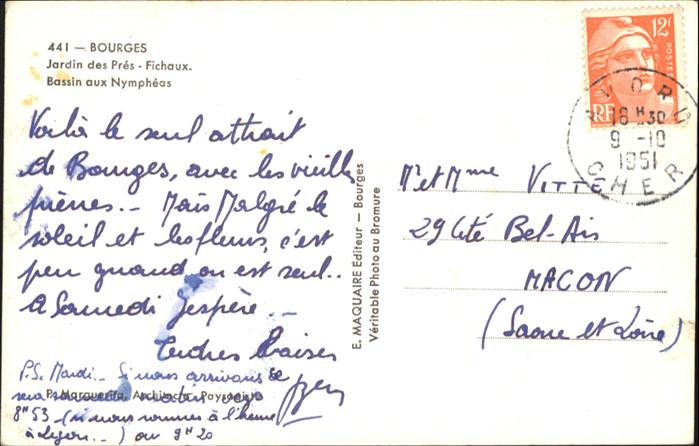 441 — BOURGES
Jardin des Prés - Fichaux.
Bassin aux Nymphéas
Voilà le seul attrait
de Bourges, avec les vieilles
pierres.. Mais Malgré le
soleil et les fleurs, c'est
peu quand on est seul..
A Samedi j'espère..
Tendres Baisers
P.S. Mardi.. Si nous arrivons ce
sera
8H53 (si nous sommes à l'heure
à Lyon..) ou 9H20
P. Marguerita, Architecte - Paysagiste
E. MAQUAIRE Editeur — Bourges
Véritable Photo au Bromure
12F
POSTES
RF
AVORD
18H30
9 -10
1951
CHER
Mr et Mme VITTE
29 Cité Bel-Air
MACON
(Saone et Loire)